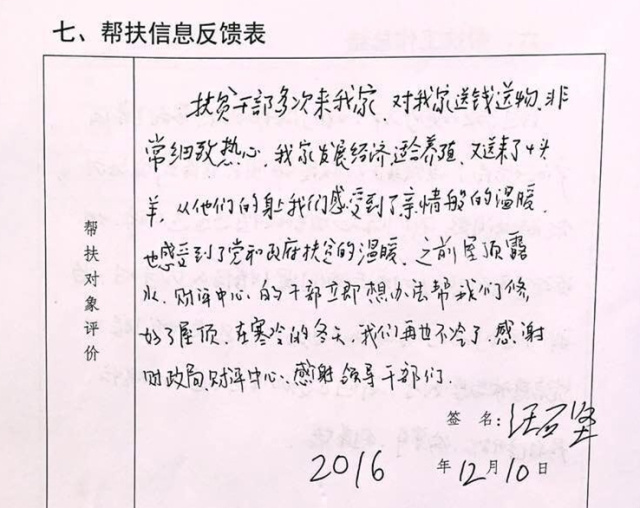 七、帮扶信息反馈表
帮扶对象评价
扶贫干部多次来我家,对我家送钱送物、非
常细致热心,我家发展经济适合养殖,又送来了4头
羊,从他们的身上我们感受到了亲情般的温暖,
也感受到了党和政府扶贫的温暖。之前屋顶露
水,财评中心的干部立即想办法帮我们修
好了屋顶,在寒冷的冬天,我们再也不冷了,感谢
财政局财评中心、感谢领导干部们.
签 名:汪石坚
2016 年12月10日